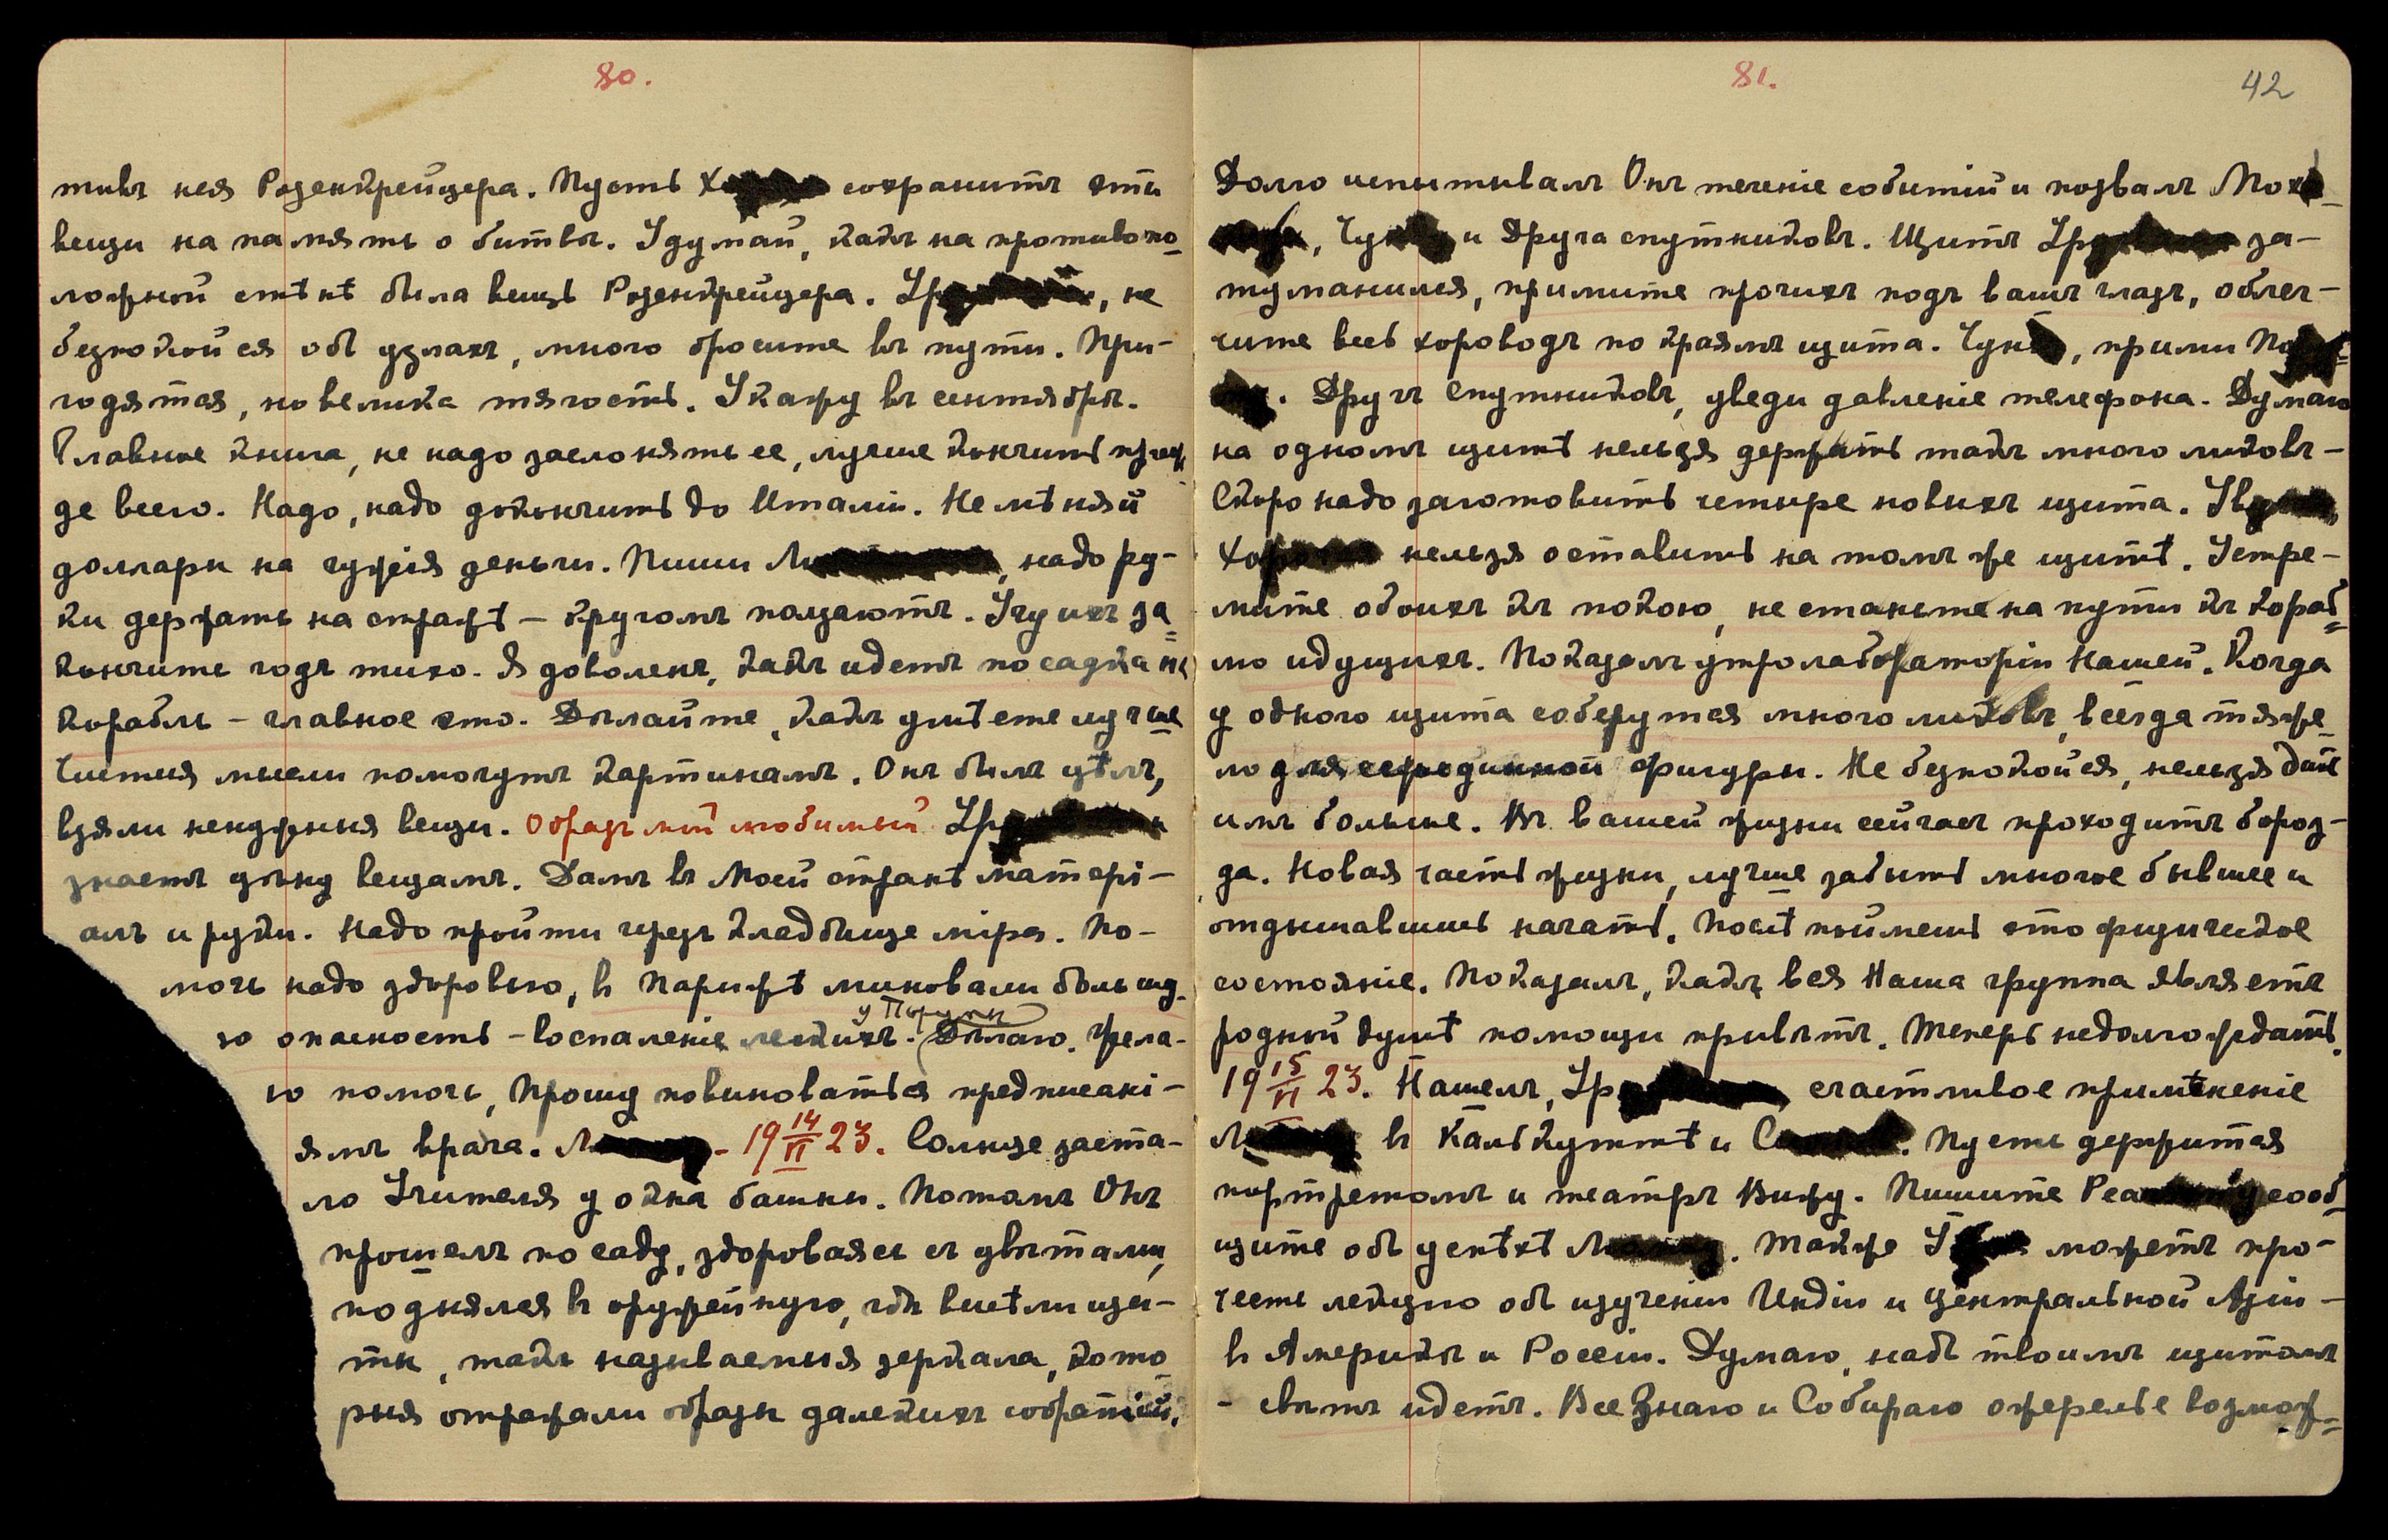 80.
тивъ нея Розенкрейцера. Пусть Х сохранитъ эти
вещи на память о битвѣ. Удумай, какъ на противопо-
ложной стѣнѣ была вещь Розенкрейцера. Ур, не
безпокойся объ узлахъ, много бросите въ пути. При-
годятся, но велика тягость. Укажу въ сентябрѣ.
Главное книга, не надо заслонять ее, лучше кончить преж
де всего. Надо, надо докончить до Италіи. Не мѣняй
доллары на чужія деньги. Пиши Ли, надо ру-
ки держать на стражѣ – кругомъ полцаютъ. Учу ихъ за-
кончите годъ тихо. Я доволенъ, какъ идетъ посадка на
корабль – главное это. Дѣлайте, какъ умѣете лучше
Чистыя мысли помогутъ картинамъ. Онъ былъ цѣлъ,
взяли ненужныя вещи. Образъ мой любимый Ур
знаетъ цѣну вещамъ. Дамъ въ Моей странѣ матері-
алъ и руки. Надо пройти чрезъ кладбище міра. По-
мочь надо здоровью, въ Парижѣ миновали большу-
у Поруты
ю опасность – воспаленіе легкихъ. Думаю. Жела-
ю помочь, прошу повиноваться предписані-
ямъ врача. Л – 19 14/VI 23. Солнце заста-
ло Учителя у окна башни. Потомъ Онъ
прошелъ по саду, здороваясь съ цвѣтами,
поднялся въ оружейную, гдѣ висѣли щи-
ты, такъ называемыя зеркала, кото-
рыя отражали образы далекихъ собратій.
81.
42
Долго испытывалъ Онъ теченіе событій и позвалъ Мох-
, Чу и Друга спутниковъ. Щитъ Ур за-
туманился, примите прочихъ подъ вашъ глазъ, облег-
чите весь хороводъ по краямъ щита. Чун, прими По
. Другъ Спутниковъ, уведи давленіе телефона. Думаю
на одномъ щитѣ нельзя держать такъ много ликовъ –
Скоро надо заготовить четыре новыхъ щита. Ув
Хо нельзя оставить на томъ же щитѣ. Устре-
мите обоихъ къ покою, не станьте на пути къ кораб-
лю идущихъ. Показалъ утро лабораторіи Нашей. Когда
у одного щита соберутся много ликовъ, всегда тяже-
ло для серединной фигуры. Не безпокойся, нельзя дать
имъ больше. Въ вашей жизни сейчасъ проходитъ бороз-
да. Новая часть жизни, лучше забыть многое бывшее и
отдышавшись начать. Послѣ поймешь это физическое
состояніе. Показалъ, какъ вся Наша группа являетъ
родной душѣ помощи привѣтъ. Теперь недолго ждать.
19 15/VI 23. Нашелъ, Ур счастливое примѣненіе
Л въ Калькуттѣ и С. Пусть держится
портретомъ и театръ Вижу. Пишите Реа сооб-
щите объ успѣхѣ Л. Также У можетъ про-
честь лекцію объ изученіи Индіи и Центральной Азіи –
въ Америкѣ и Россіи. Думаю, надъ твоимъ щитомъ
– свѣтъ идетъ. Все Знаю и Собираю ожерелье возмож-